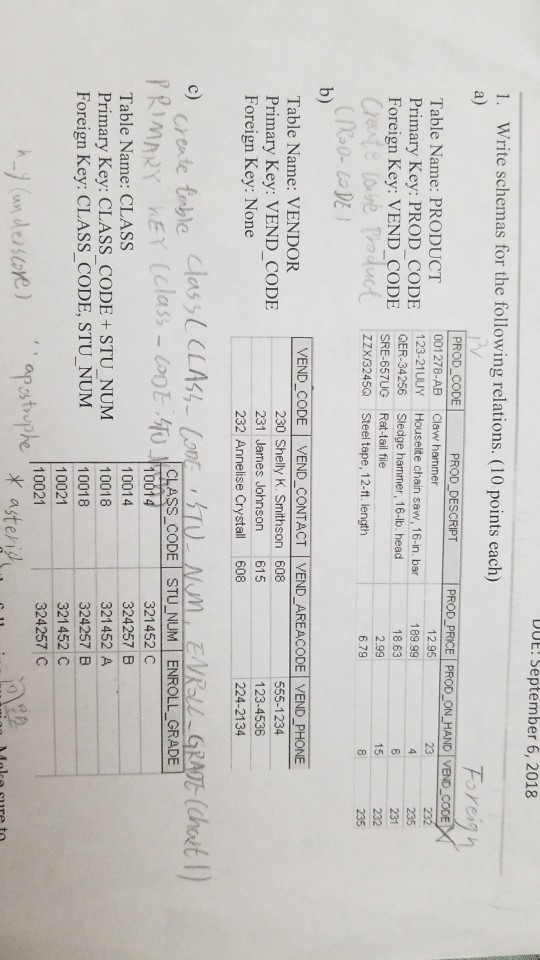 DUE: September 6, 2018
1. Write schemas for the following relations. (10 points each)
a)
Foreign
PROD_CODE PROD_DESCRIPT PROD_PRICE PROD_ON_HAND VEND_CODE
001278-AB Claw hammer 12.95 23 232
123-21UUY Houselite chain saw, 16-in. bar 189.99 4 235
QER-34256 Sledge hammer, 16-lb. head 18.63 6 231
SRE-657UG Rat-tail file 2.99 15 232
ZZX/3245Q Steel tape, 12-ft. length 6.79 8 235
Table Name: PRODUCT
Primary Key: PROD_CODE
Foreign Key: VEND_CODE
Create table Product
(PROD-CODE
b)
VEND_CODE VEND_CONTACT VEND_AREACODE VEND_PHONE
230 Shelly K. Smithson 608 555-1234
231 James Johnson 615 123-4536
232 Annelise Crystall 608 224-2134
Table Name: VENDOR
Primary Key: VEND_CODE
Foreign Key: None
c)
create table class (CLASS-CODE, STU-NUM, ENROLL-GRADE (char 1)
PRIMARY KEY (class-CODE, STU
CLASS_CODE STU_NUM ENROLL_GRADE
10014 321452 C
10014 324257 B
10018 321452 A
10018 324257 B
10021 321452 C
10021 324257 C
Table Name: CLASS
Primary Key: CLASS_CODE + STU_NUM
Foreign Key: CLASS_CODE, STU_NUM
(underscore) '' apostrophe * asterisk
Make sure to